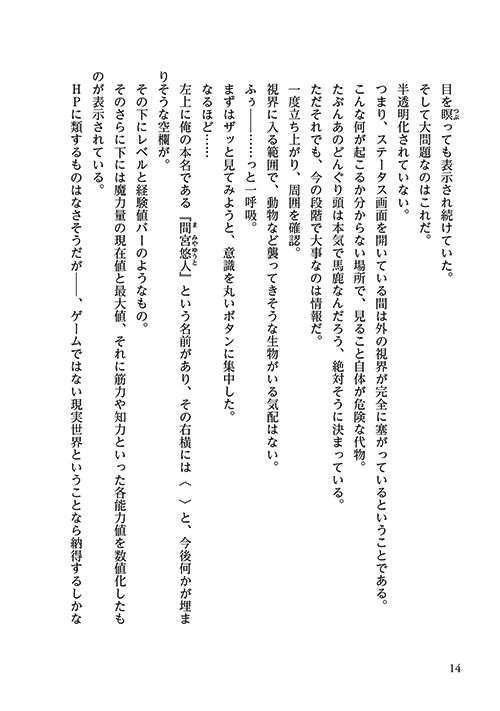 目を瞑っても表示され続けていた。
そして大問題なのはこれだ。
半透明化されていない。
つまり、ステータス画面を開いている間は外の視界が完全に塞がっているということである。
こんな何が起こるか分からない場所で、見ること自体が危険な代物。
たぶんあのどんぐり頭は本気で馬鹿なんだろう、絶対そうに決まっている。
ただそれでも、今の段階で大事なのは情報だ。
一度立ち上がり、周囲を確認。
視界に入る範囲で、動物など襲ってきそうな生物がいる気配はない。
ふぅ――……っと一呼吸。
まずはザッと見てみようと、意識を丸いボタンに集中した。
なるほど……
左上に俺の本名である『間宮悠人』という名前があり、その右横には〈　〉と、今後何かが埋ま
りそうな空欄が。
その下にレベルと経験値バーのようなもの。
そのさらに下には魔力量の現在値と最大値、それに筋力や知力といった各能力値を数値化したも
のが表示されている。
ＨＰに類するものはなさそうだが――、ゲームではない現実世界ということなら納得するしかな
14